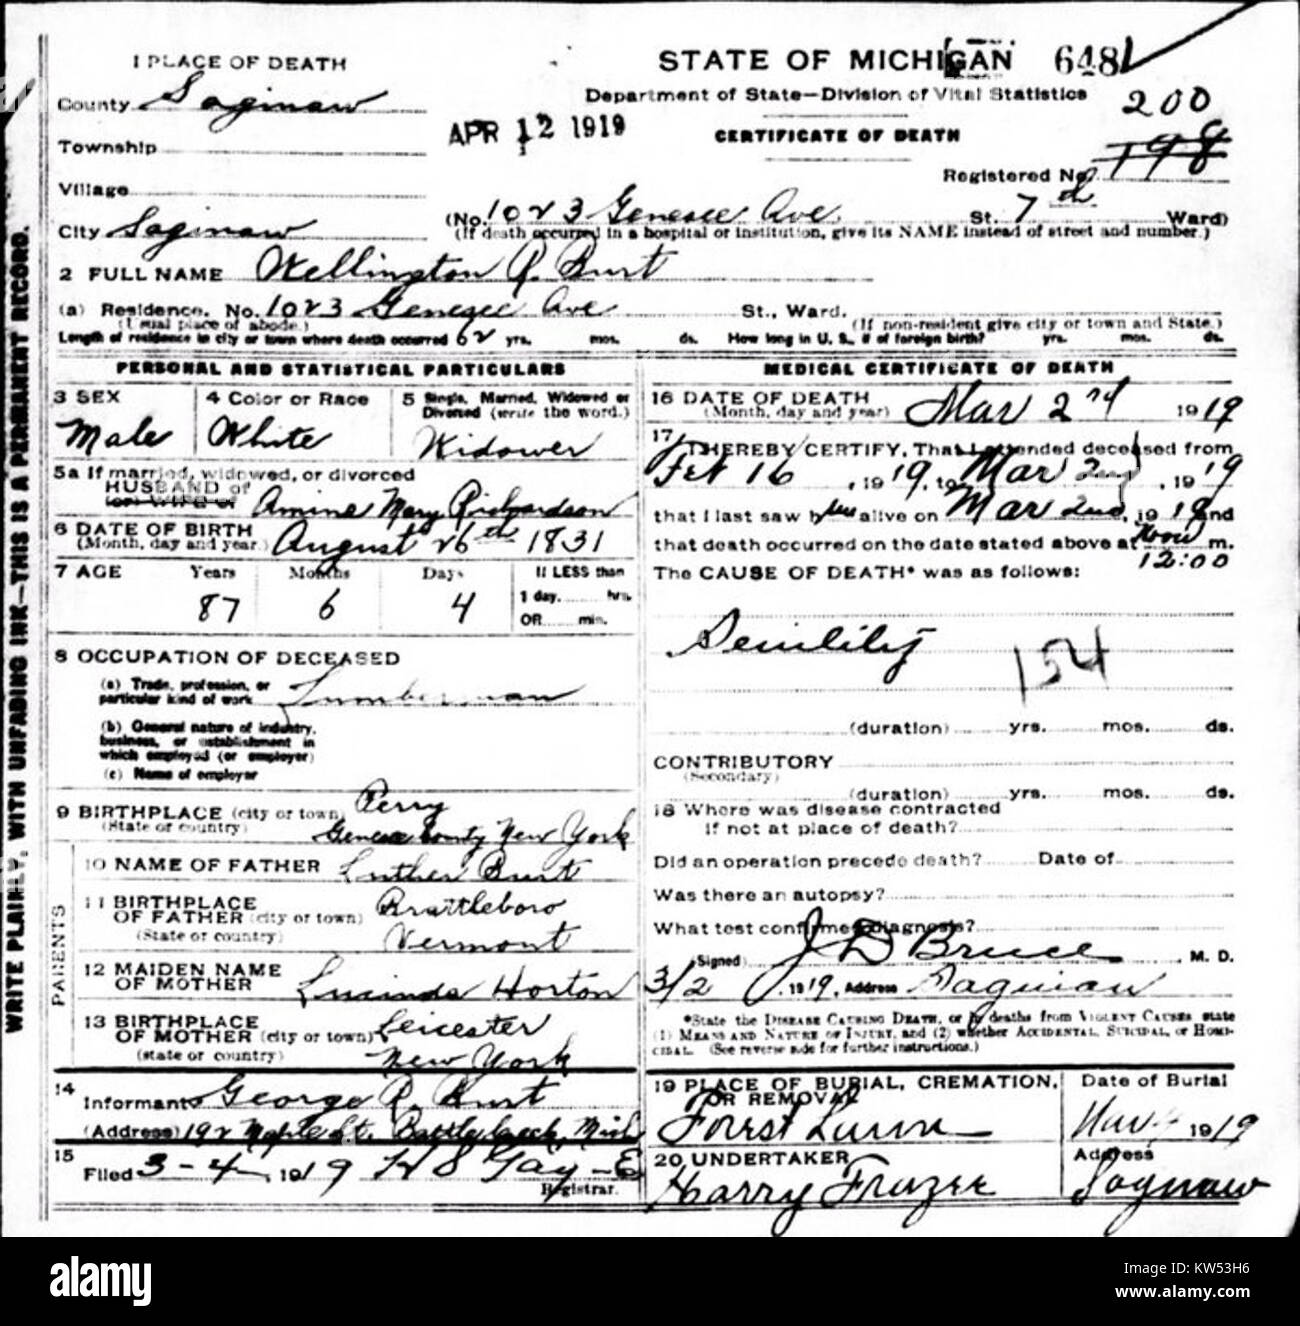 1 PLACE OF DEATH
STATE OF MICHIGAN 6481
County Saginaw
Department of State—Division of Vital Statistics
200
APR 12 1919
CERTIFICATE OF DEATH
Township
Registered No. 198
Village
City Saginaw
(No. 1023 Genesee Ave. St. 7th Ward)
(If death occurred in a hospital or institution, give its NAME instead of street and number.)
2 FULL NAME Wellington R. Burt
(a) Residence. No. 1023 Genesee Ave St., Ward.
(Usual place of abode.) (If non-resident give city or town and State.)
Length of residence in city or town where death occurred 62 yrs. mos. ds. How long in U. S., if of foreign birth? yrs. mos. ds.
PERSONAL AND STATISTICAL PARTICULARS
3 SEX
Male
4 Color or Race
White
5 Single, Married, Widowed or
Divorced (write the word.)
Widower
5a If married, widowed, or divorced
HUSBAND of
(or) WIFE of Amine Mary Richardson
6 DATE OF BIRTH
(Month, day and year. August 26th 1831
7 AGE Years Months Days If LESS than
1 day, hrs.
87 6 4 OR min.
8 OCCUPATION OF DECEASED
(a) Trade, profession, or
particular kind of work Lumberman
(b) General nature of industry,
business, or establishment in
which employed (or employer)
(c) Name of employer
9 BIRTHPLACE (city or town) Perry
(State or country) Genesee County New York
PARENTS
10 NAME OF FATHER Luther Burt
11 BIRTHPLACE
OF FATHER (city or town) Brattleboro
(State or country) Vermont
12 MAIDEN NAME
OF MOTHER Lucinda Horton
13 BIRTHPLACE
OF MOTHER (city or town) Leicester
(state or country) New York
14
Informant George R. Burt
(Address) 192 Maple St. Battle Creek, Mich
15
Filed 3-4- 1919 H S Gay
Registrar.
MEDICAL CERTIFICATE OF DEATH
16 DATE OF DEATH
(Month, day and year) Mar 2nd 1919
17
I HEREBY CERTIFY, That I attended deceased from
Feb 16, 1919, to Mar 2nd, 1919
that I last saw him alive on Mar 2nd, 1919 and
that death occurred on the date stated above at Noon m.
12:00
The CAUSE OF DEATH* was as follows:
Senility
154
(duration) yrs. mos. ds.
CONTRIBUTORY
(Secondary)
(duration) yrs. mos. ds.
18 Where was disease contracted
if not at place of death?
Did an operation precede death? Date of
Was there an autopsy?
What test confirmed diagnosis?
(Signed) J D Bruce M. D.
3/2, 1919, Address Saginaw
*State the DISEASE CAUSING DEATH, or in deaths from VIOLENT CAUSES state
(1) MEANS AND NATURE OF INJURY, and (2) whether ACCIDENTAL, SUICIDAL, or HOMI-
CIDAL. (See reverse side for further instructions.)
19 PLACE OF BURIAL, CREMATION,
OR REMOVAL
Forest Lawn
Date of Burial
Mar 4 1919
20 UNDERTAKER
Harry Frazee
Address
Saginaw
WRITE PLAINLY, WITH UNFADING INK—THIS IS A PERMANENT RECORD.
a alamy
Image ID: KW53H6
www.alamy.com